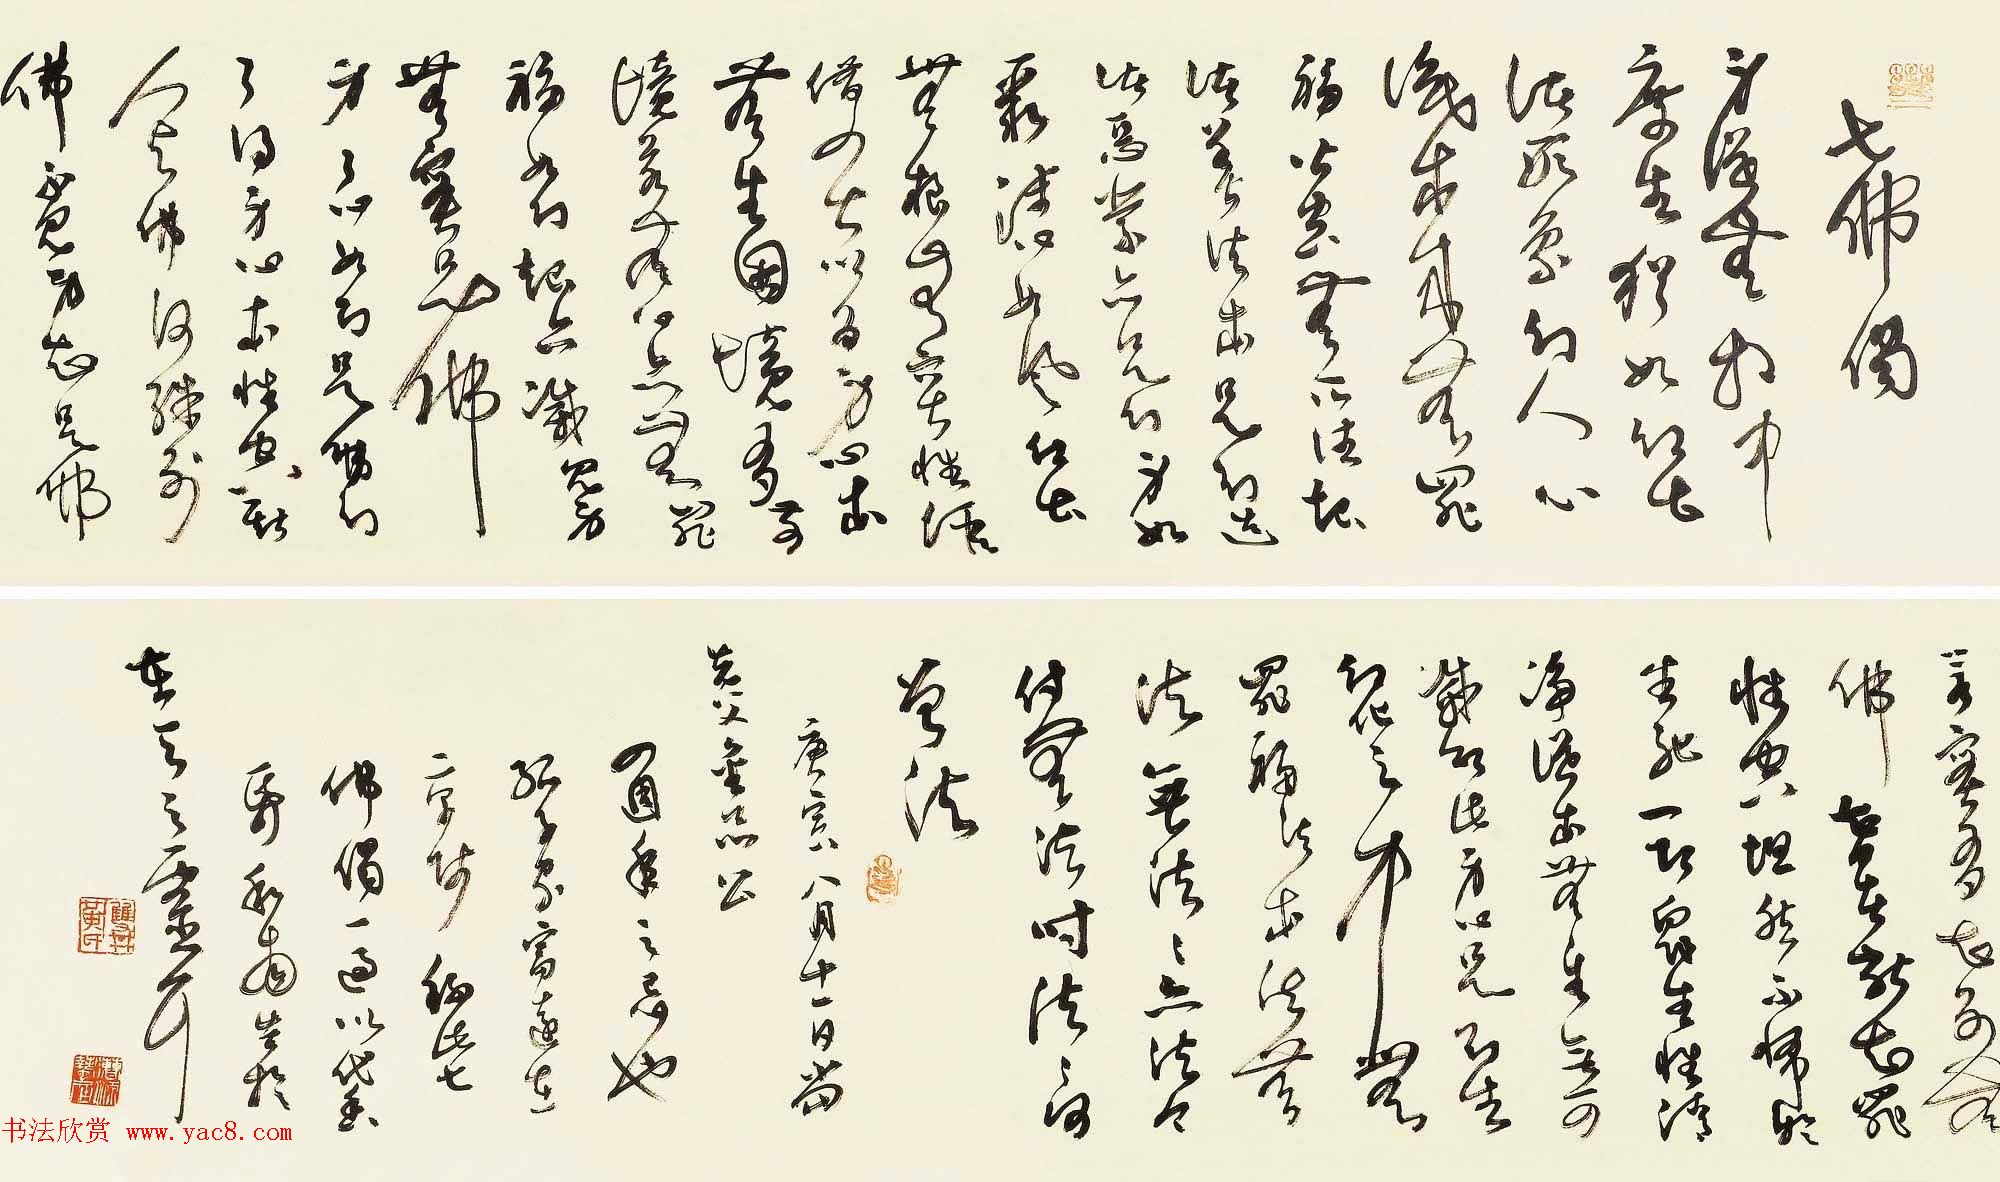 七佛偈
身從無相中
受生猶如幻出
諸形象幻人心
識本來無罪
福皆空無所住起
諸善法本是幻造
諸惡業亦是幻身如
聚沫心如風幻出
無根無實性假
借四大以為身心本
無生因境有前
境若無心亦無罪
福如幻起亦滅見身
無實是佛
身了心如幻是佛幻
了得身心本性空斯
人與佛何殊別
佛不見身知是佛
若實有知別無
佛智者能知罪
性空坦然不怖於
生死一切眾生性清
淨從本無生無可
滅即此身心是幻生
幻化之中無
罪福法本法無
法無法法亦法今
付無法時法法何
曾法
庚寅八月十一日當
先父公
四週年之忌也
孤子遠在
京師此七
佛偈一通以代香
於
在天之靈
书法欣赏 www.yac8.com